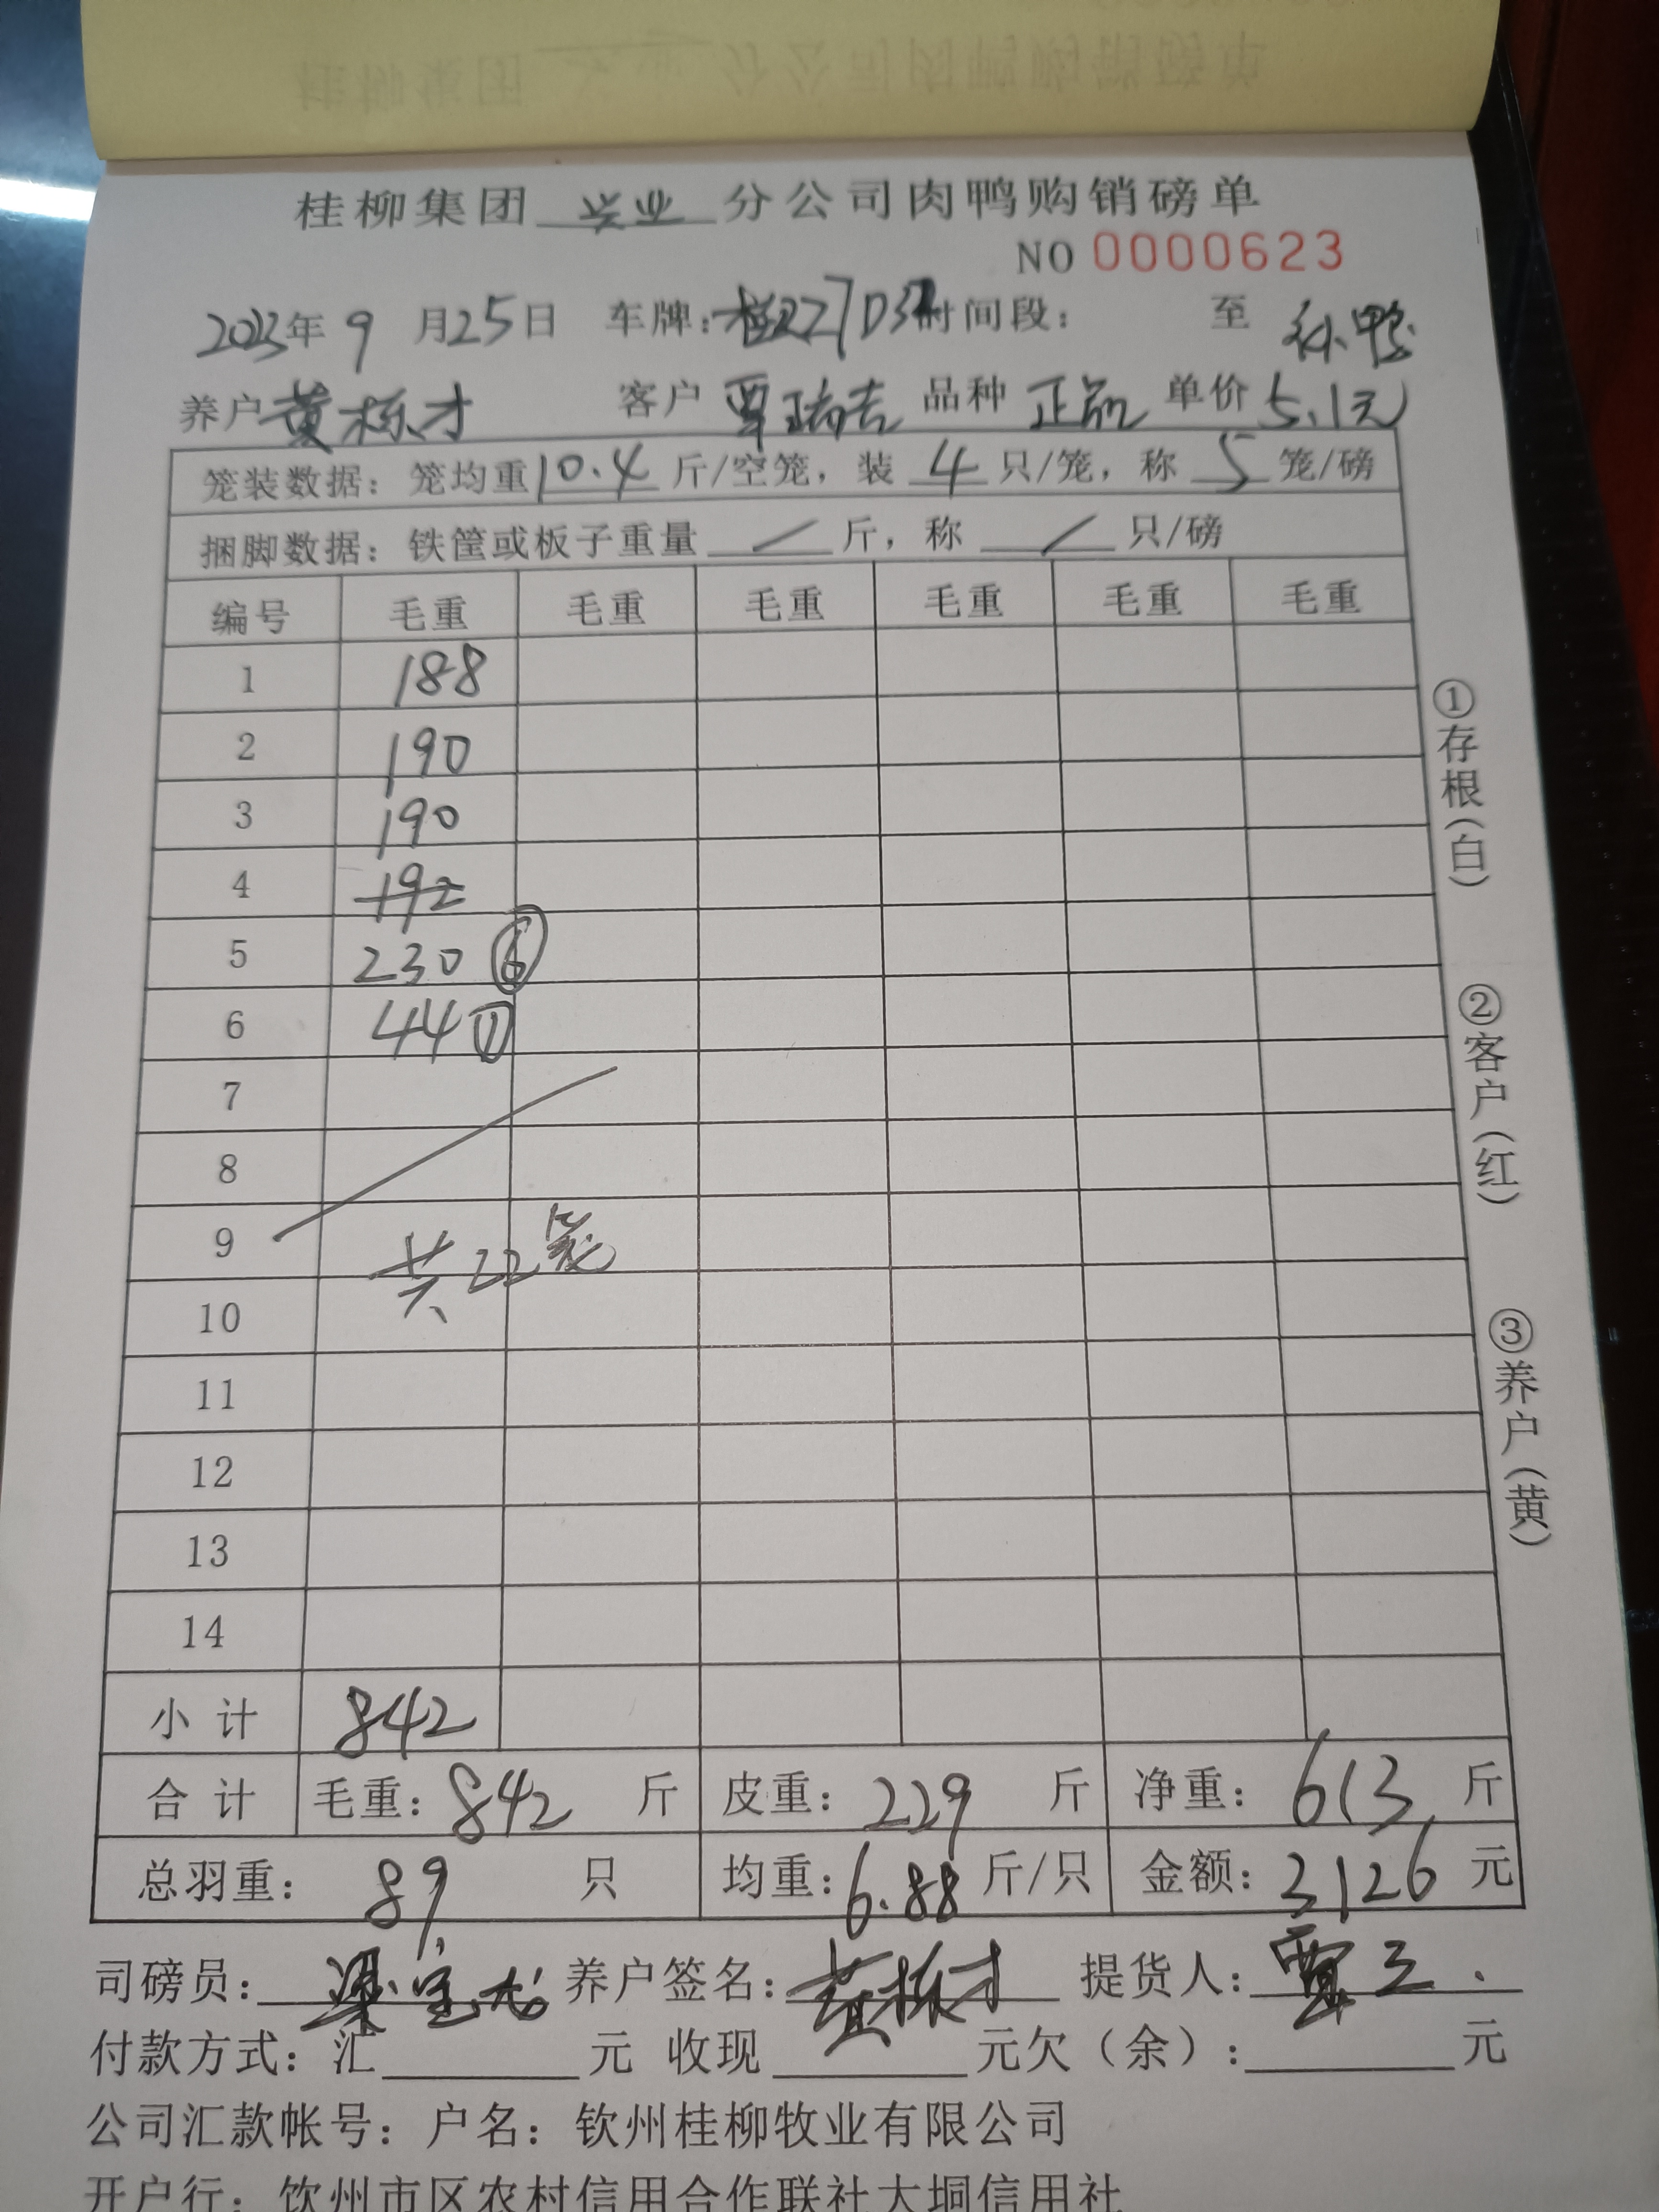 桂柳集团 兴业 分公司肉鸭购销磅单
NO 0000623
2023年 9 月25日 车牌: 时间段: 至
养户 黄栋才 客户 覃瑞吉 品种 正品 单价 5.1元
笼装数据: 笼均重 10.4 斤/空笼, 装 4 只/笼, 称 5 笼/磅
捆脚数据: 铁筐或板子重量 / 斤, 称 / 只/磅
编号 毛重 毛重 毛重 毛重 毛重 毛重
1 188
2 190
3 190
4 192
5 230 ⑥
6 44 ①
7
8
9 共22笼
10
11
12
13
14
小计 842
合计 毛重: 842 斤 皮重: 229 斤 净重: 613 斤
总羽重: 89 只 均重: 6.88 斤/只 金额: 3126 元
司磅员: 养户签名: 黄栋才 提货人: 覃
付款方式: 汇 元 收现 元欠(余): 元
公司汇款帐号: 户名: 钦州桂柳牧业有限公司
开户行: 钦州市区农村信用合作联社大垌信用社
①存根(白)
②客户(红)
③养户(黄)